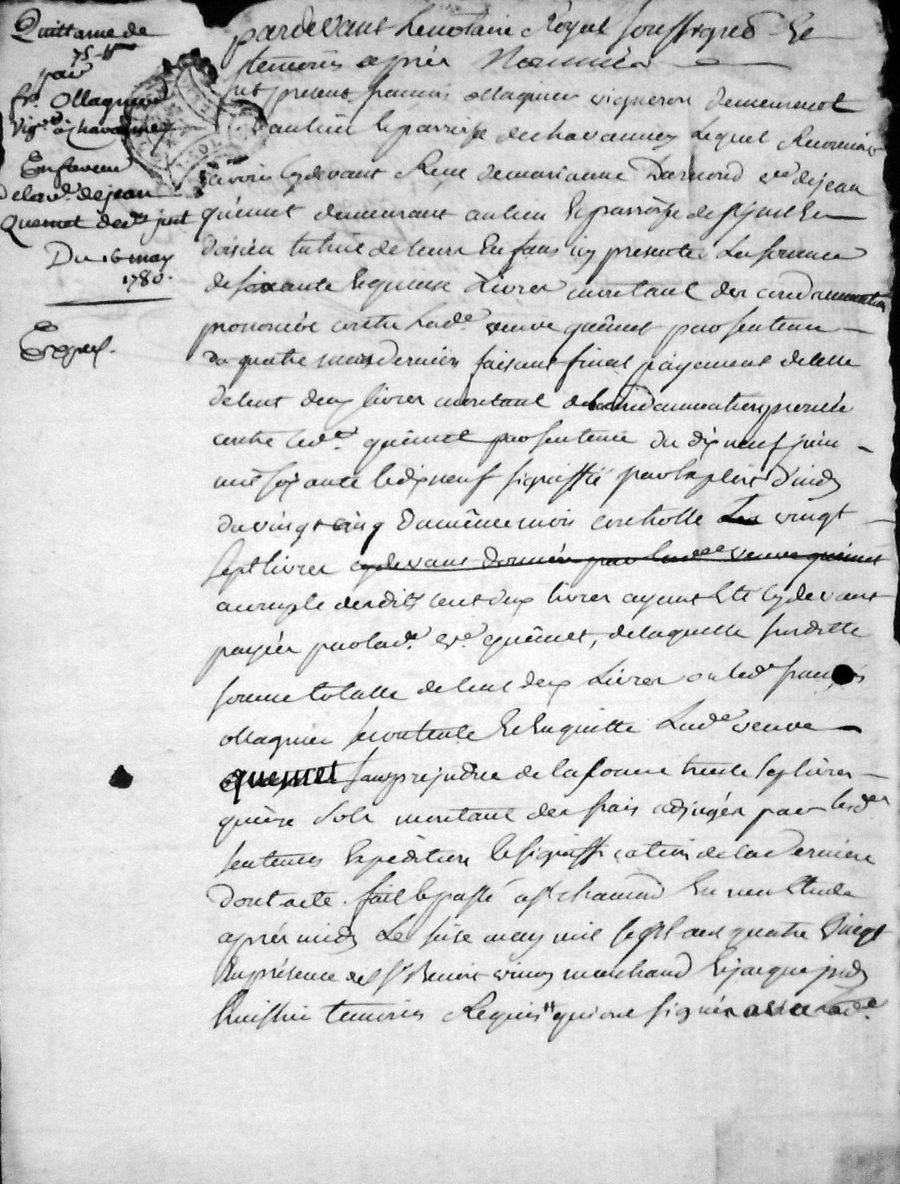 Quittance de
75 ₶
par
fs. Ollagnier
Vigon. à chavannes
En faveur
dela ve. de jean
Quemet de St just
Du 16 may
1780.
Expéd.
pardevant Le notaire Royal soussigné Et
temoins après Nommés
fut present francois ollagnier vigneron demeurant
au lieu Et parroisse de chavannes Lequel Reconnoit
avoir cydevant Reçu de marianne ve. de jean
quémet demeurant au lieu Et parroisse de St just En
doisieu tutrice de leurs Enfans cy presente La somme
de soixante Et quinze Livres montant des condamnation
prononcée contre Lade. veuve quêmet par sentence
du quatre mars dernier faisant final payement de celle
de cent deux livres montant de la condamnation prononcée
contre led. quêmet par sentence du dix neuf juin
mil soixante Et dix neuf signiffié par Exploit d'
du vingt cinq du même mois controllé Les vingt
sept livres cydevant donnés par lade. veuve quémet
a compte desdits cent deux livres ayant Eté cy devant
payées par lade. ve. quêmet, de laquelle susditte
somme totalle de cent deux Livres led. françois
ollagnier se contente Et En quitte Lade. veuve
quemet sans prejudice de la somme trente sept livres
quinze sols montant des frais adjugés par lesd.
sentences Expédition Et signiffication de la derniere
Dont acte fait Et passé à St. chamond En mon Etude
après midy Le seize may mil sept cent quatre vingt
En présence de Sr Benoit marchand Et jacque
huissier temoins Requis qui ont signés avec lade.